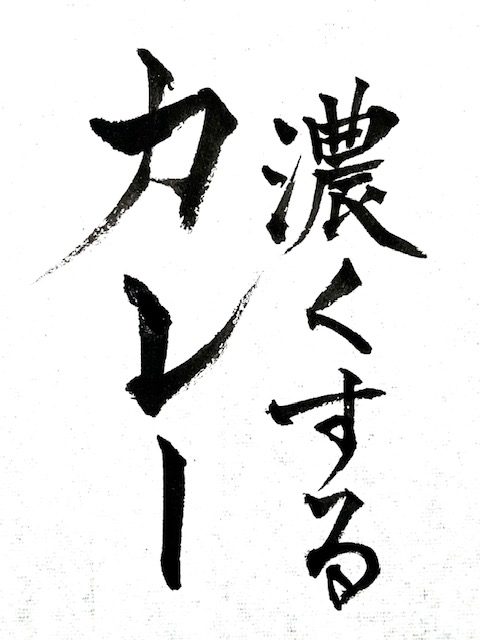 濃くする
カレー